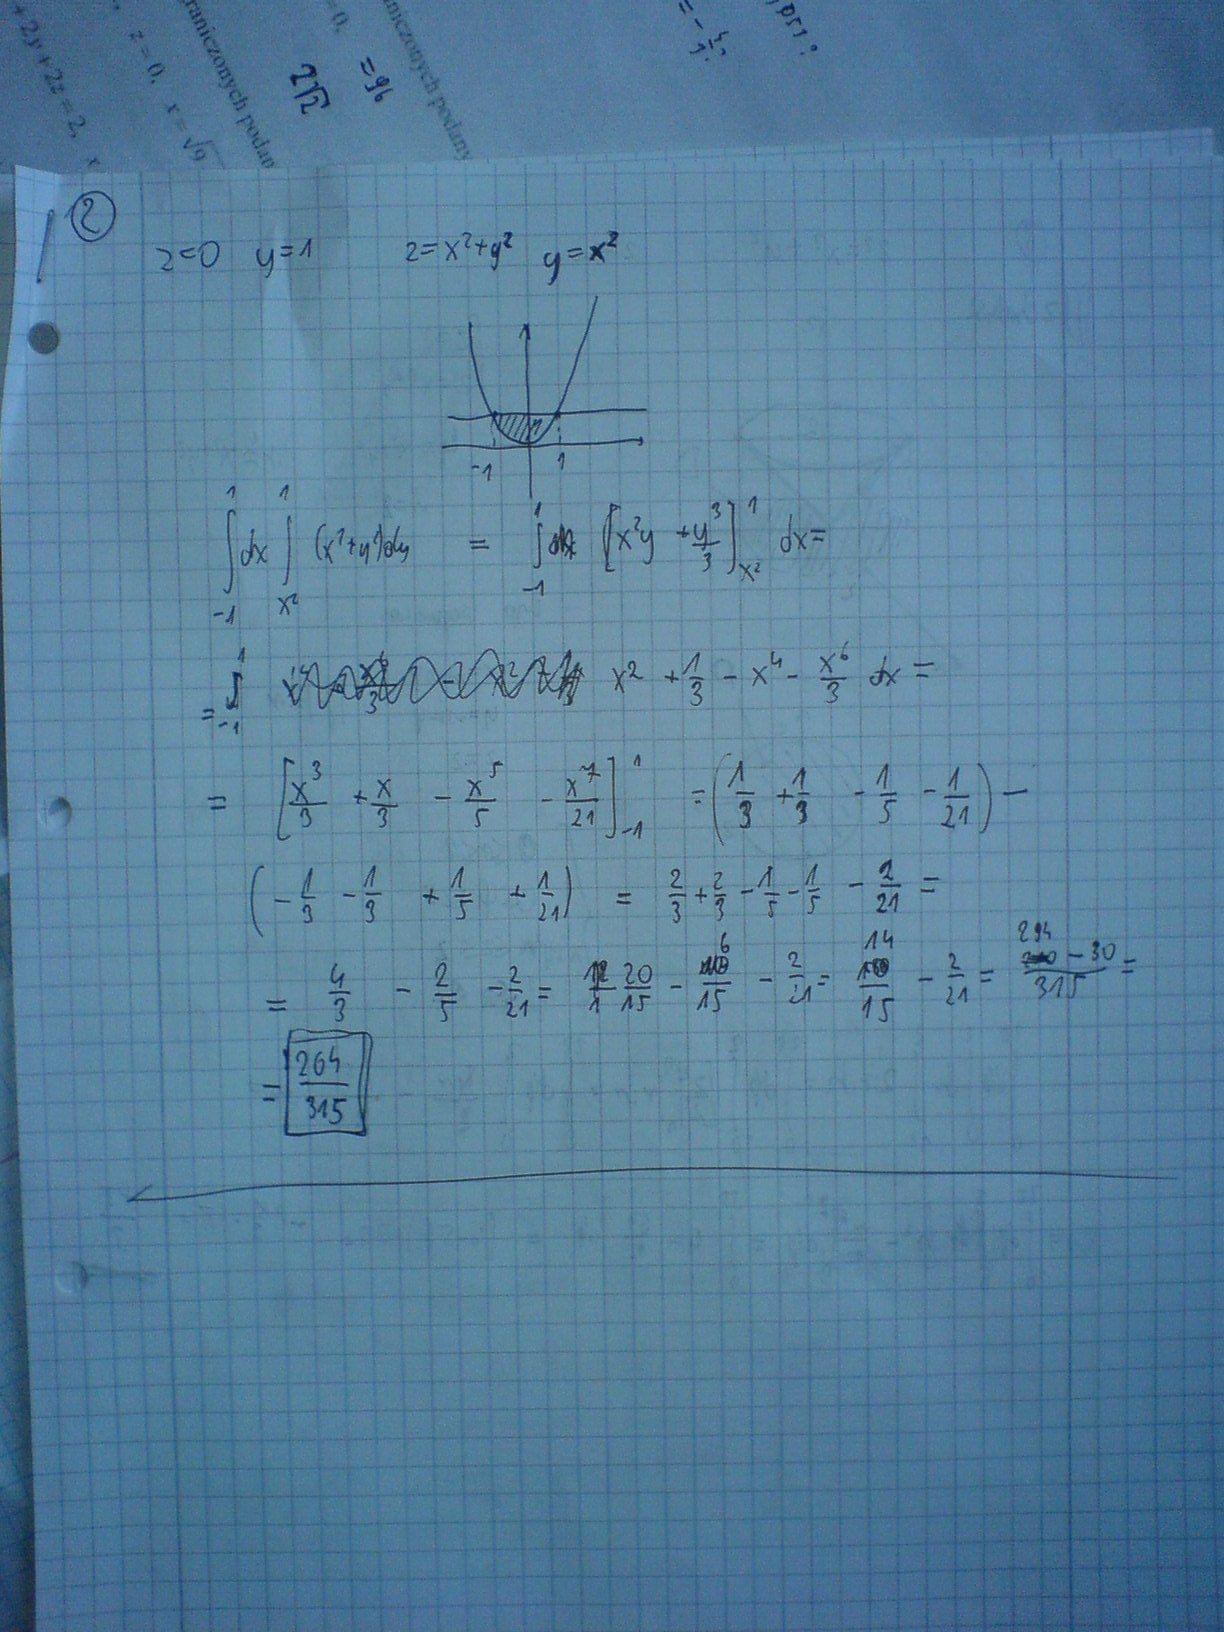 + 2y + 2z = 2, x
z = 0, x = √9
raniczonych podan
2√2
= 0,
= 96
niczonych podany
②
z=0 y=1 z=x²+y² y=x²
-1 1
∫₋₁¹ dx ∫ₓ²¹ (x²+y²)dy = ∫₋₁¹ [x²y + y³/3]ₓ²¹ dx =
= ∫₋₁¹ x² + 1/3 - x⁴ - x⁶/3 dx =
= [x³/3 + x/3 - x⁵/5 - x⁷/21]₋₁¹ = (1/3 + 1/3 - 1/5 - 1/21) -
(- 1/3 - 1/3 + 1/5 + 1/21) = 2/3 + 2/3 - 1/5 - 1/5 - 2/21 =
= 4/3 - 2/5 - 2/21 = 20/15 - 6/15 - 2/21 = 14/15 - 2/21 = 294 - 30/315 =
= 264/315